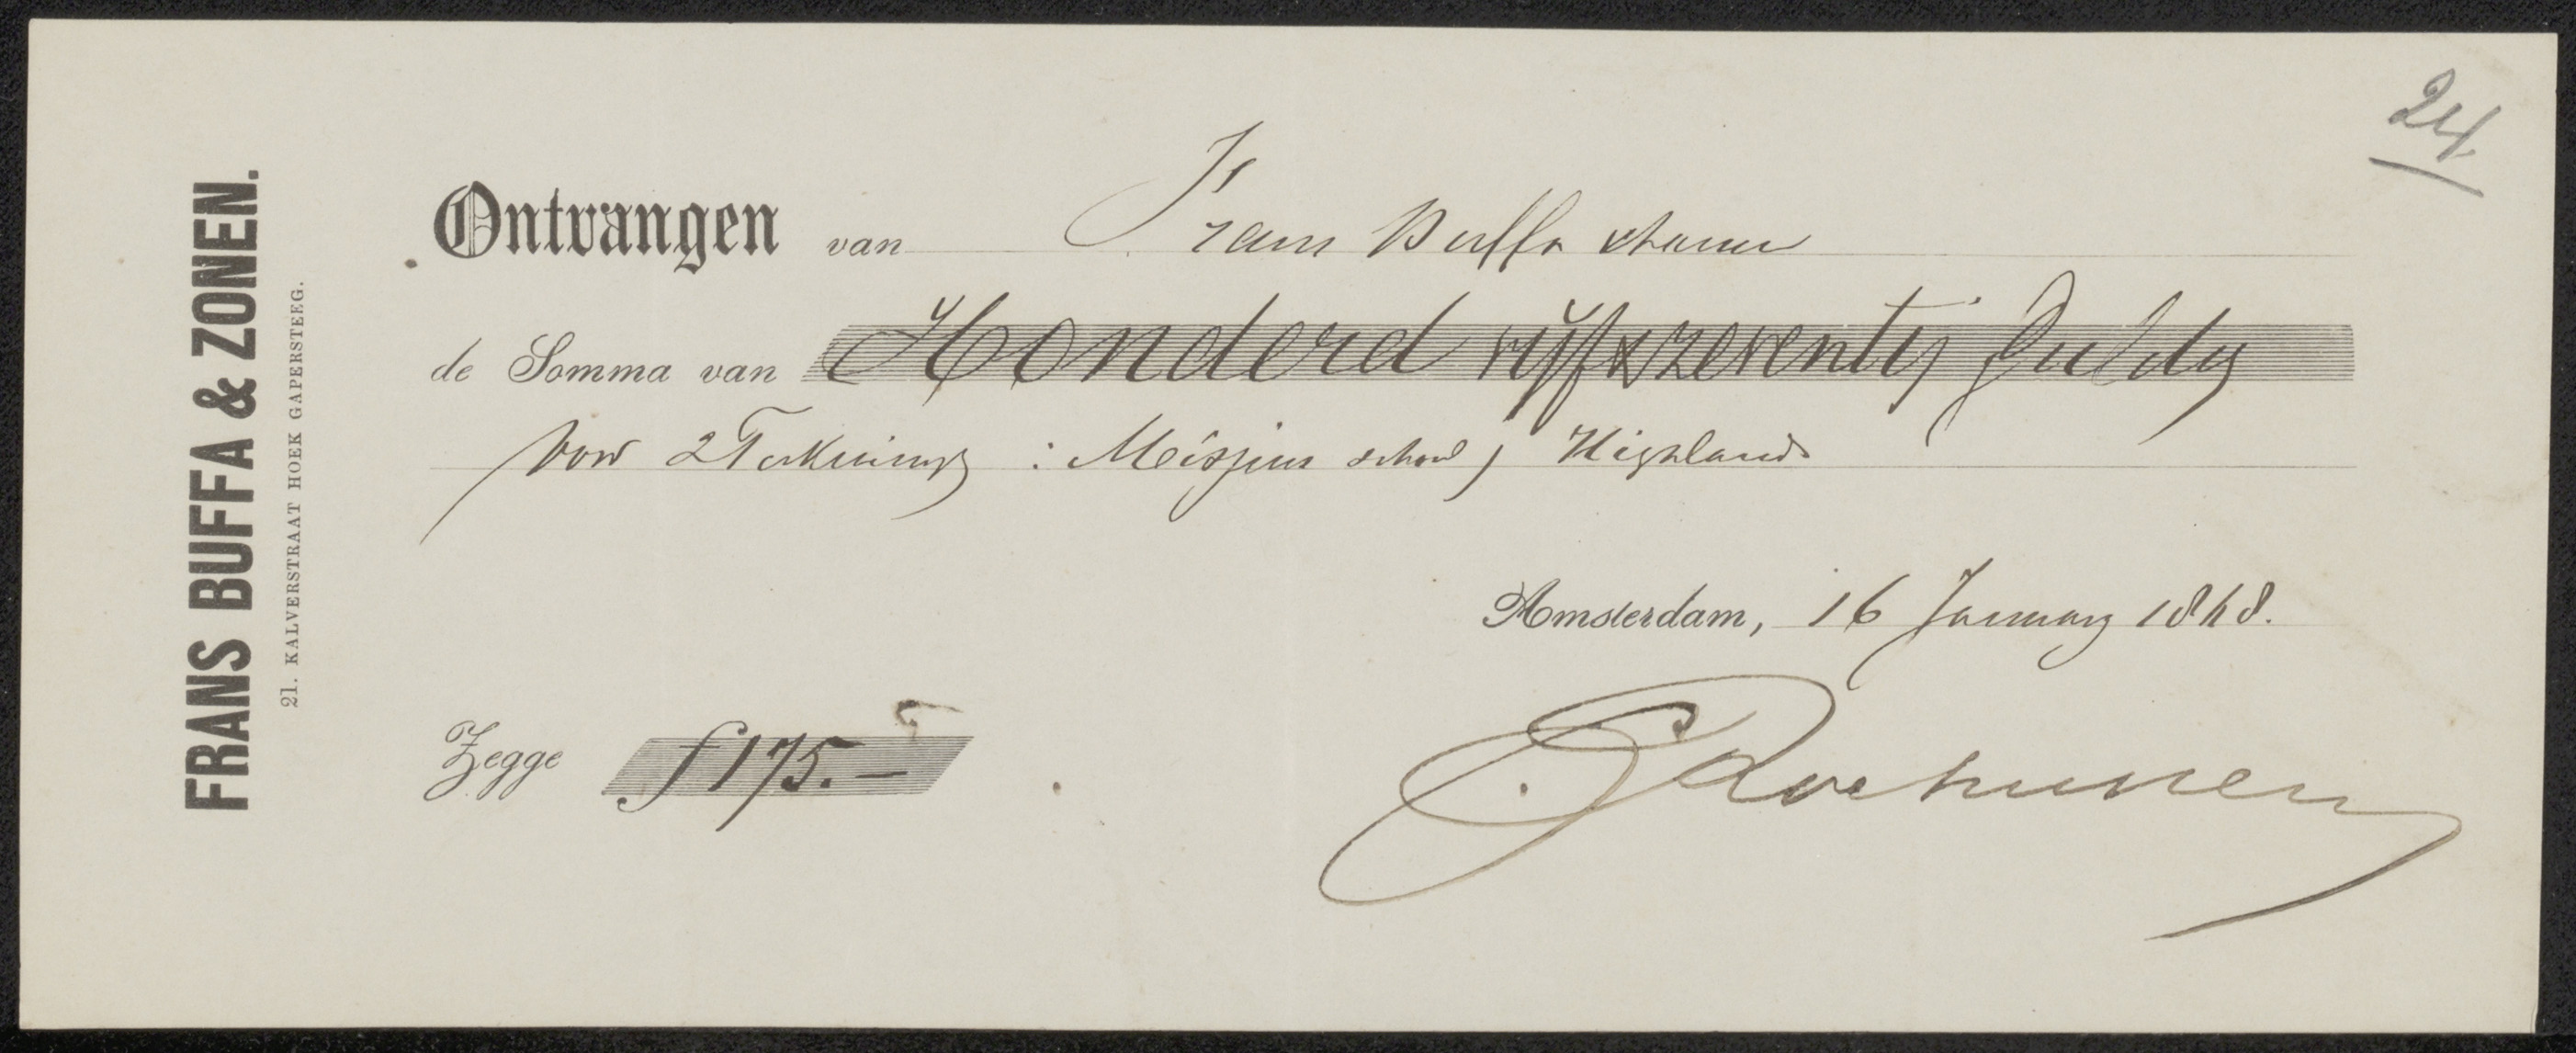 24
FRANS BUFFA & ZONEN.
21. KALVERSTRAAT HOEK GAPERSTEEG.
Ontvangen van Frans Buffa & Zonen
de Somma van Honderd vijf & zeventig Gulden
voor 2 Teekeningen : Meisjes school, Highlands
Amsterdam, 16 January 1868.
Zegge f 175.–
Rochussen